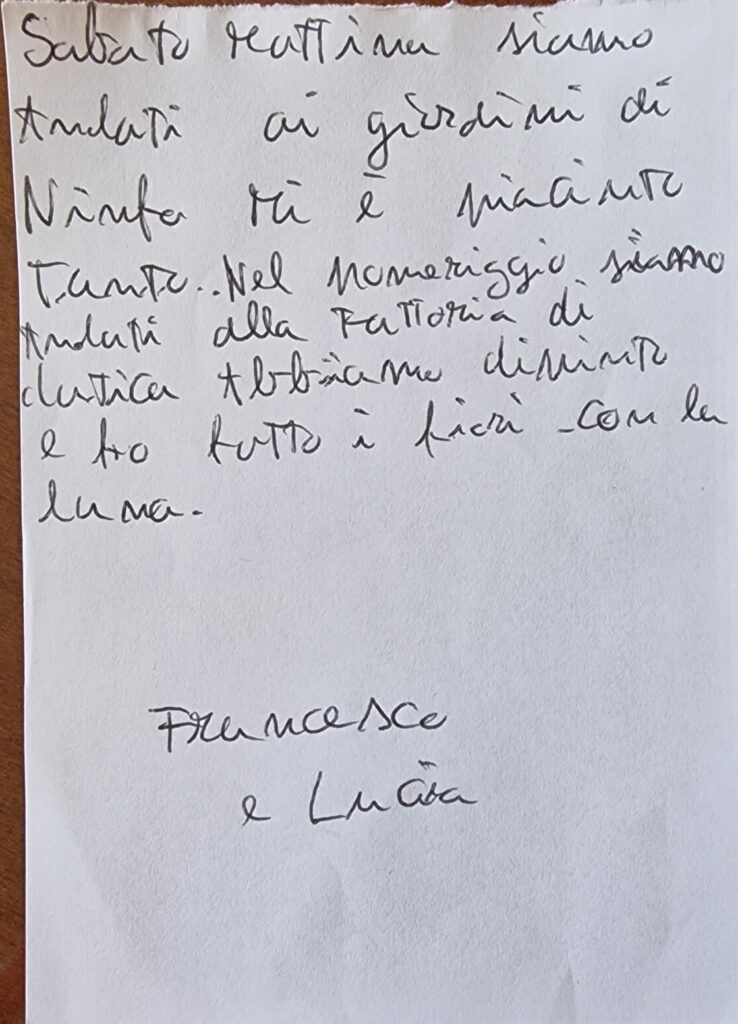 Sabato mattina siamo
andati ai giardini di
Ninfa mi è piaciuto
tanto.. Nel pomeriggio siamo
andati alla Fattoria di
datica abbiamo dipinto
e fro tutto i fiori - con la
luna.
Francesco
e Lucia